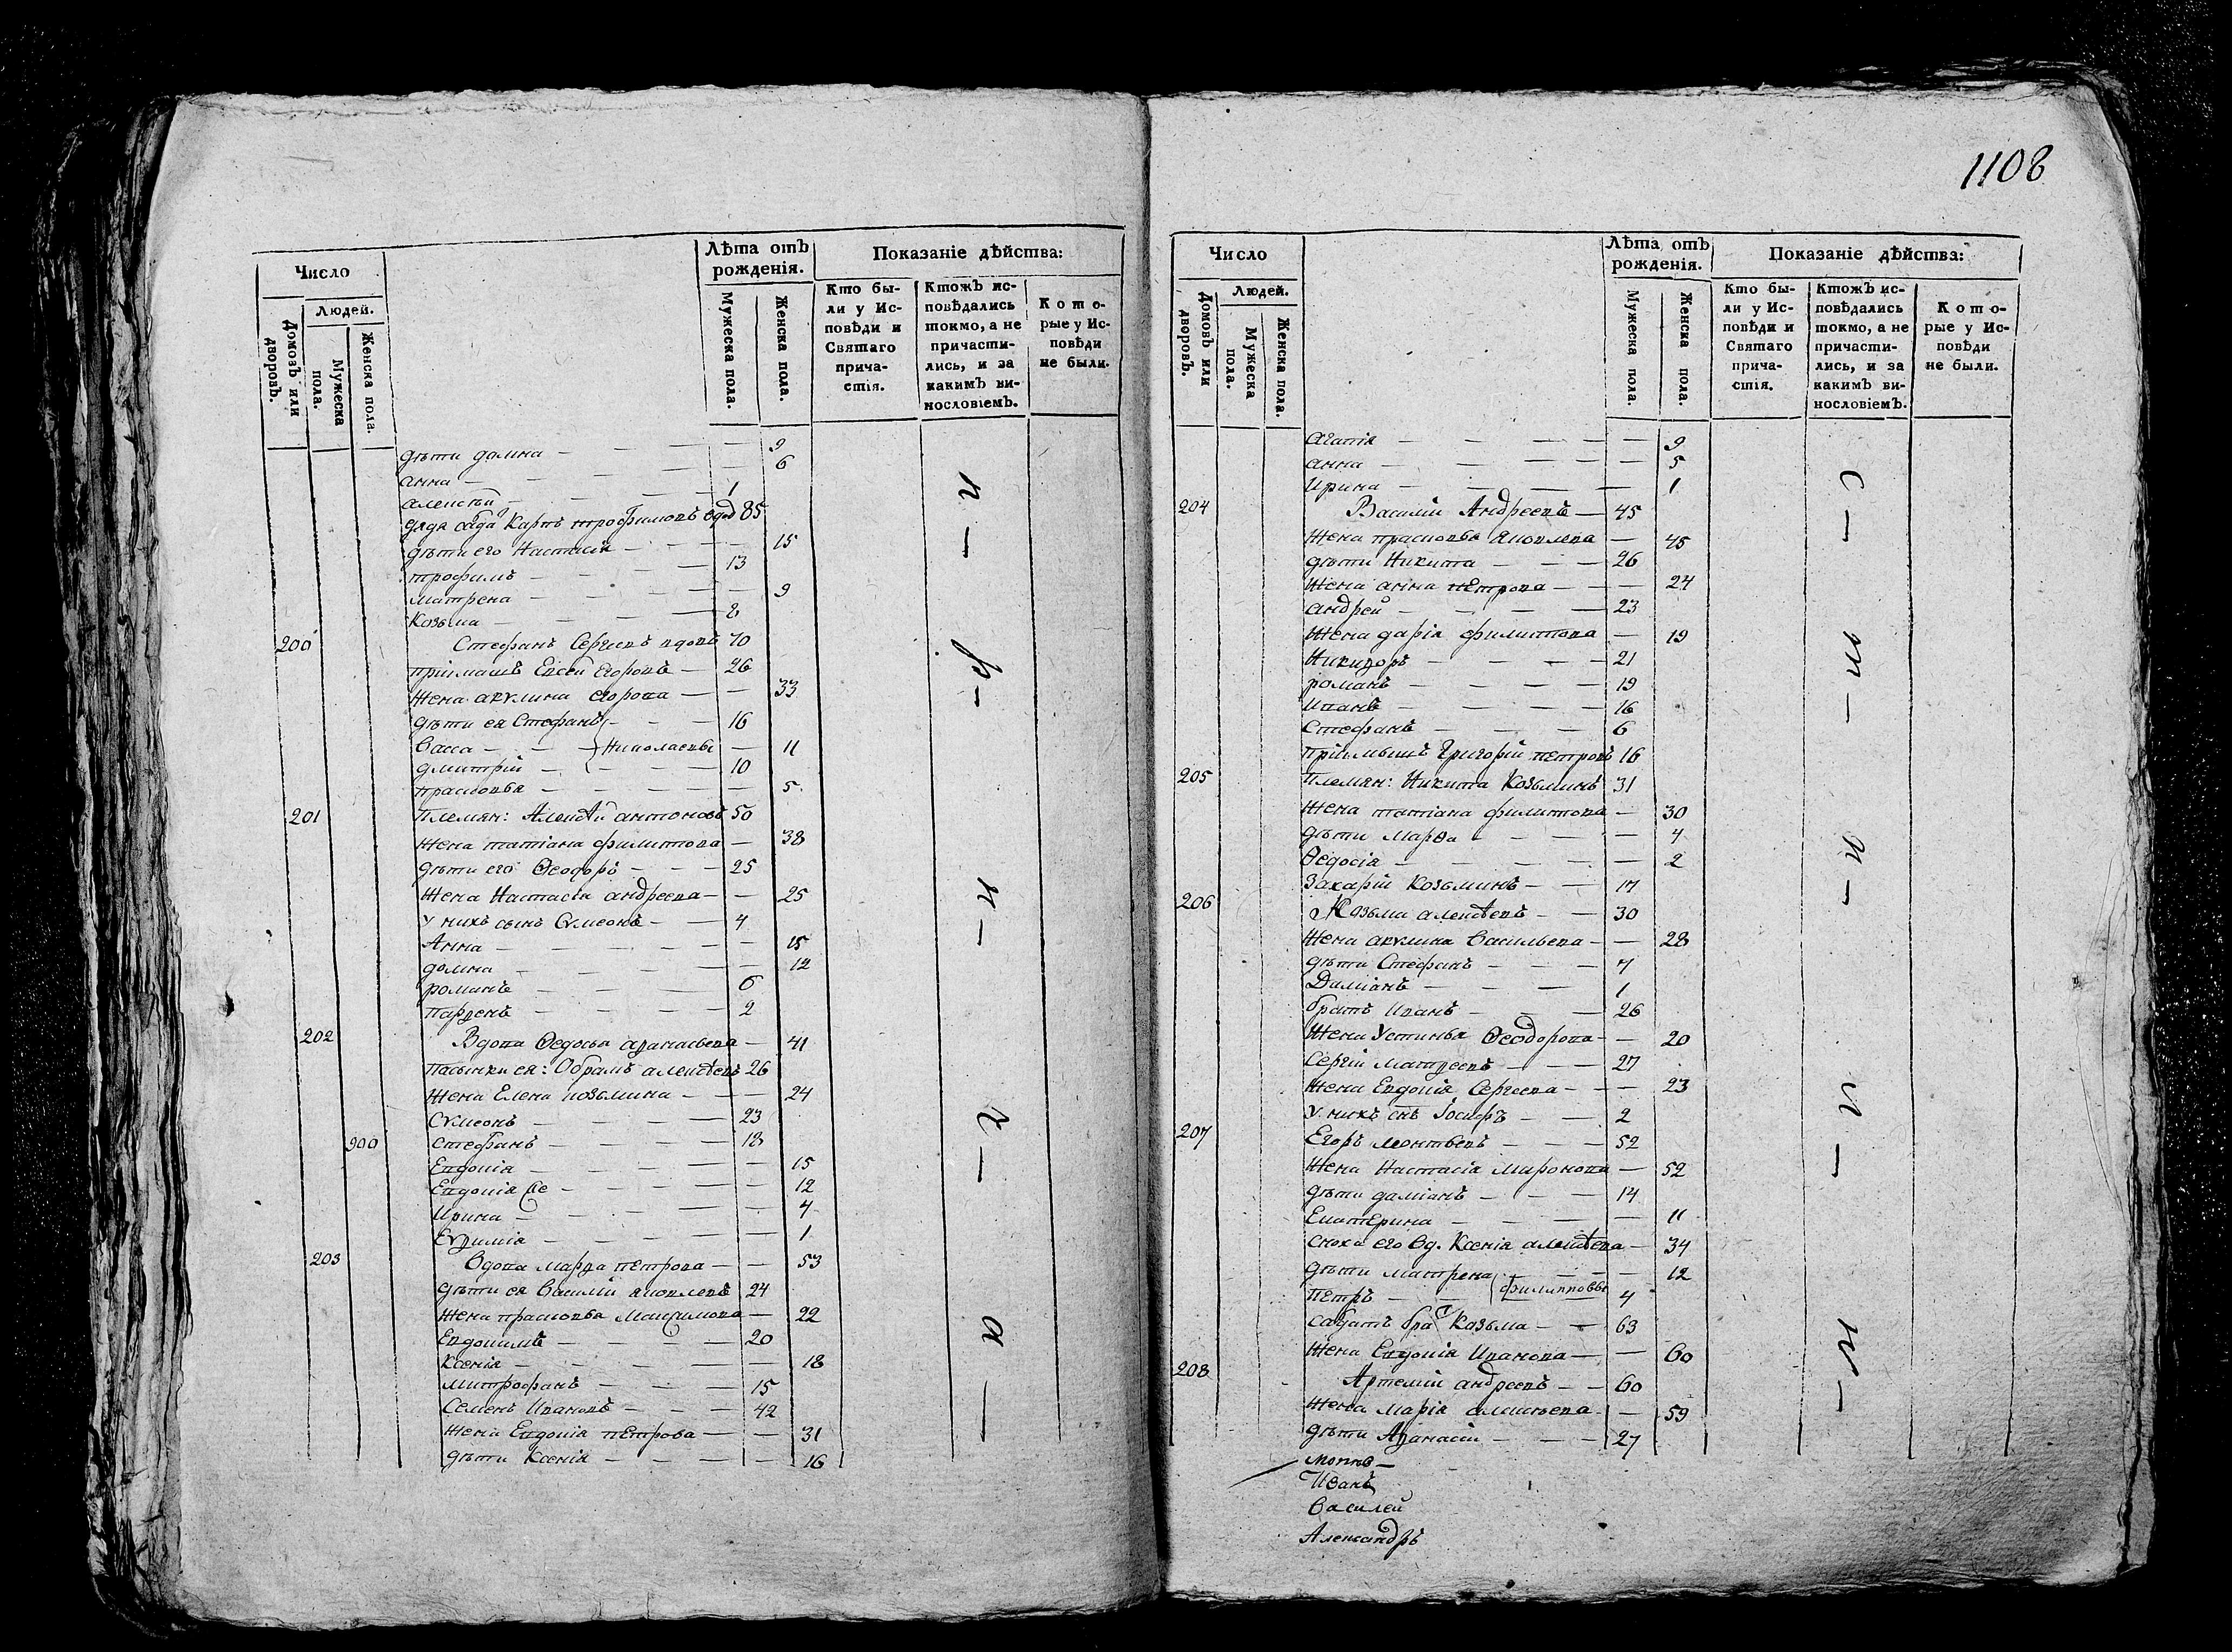 Число
Людей.
Домовъ или дворовъ.
Мужеска пола.
Женска пола.
Лѣта отъ рожденія.
Мужеска пола.
Женска пола.
Показаніе дѣйства:
Кто бы-
ли у Ис-
повѣди и
Святаго
прича-
стія.
Ктожъ ис-
повѣдались
токмо, а не
причасти-
лись, и за
какимъ ви-
нословіемъ.
Кото-
рые у Ис-
повѣди
не были.
дѣти домна — 9
анна — 6
алексѣй — 1
Карпъ трофимовъ вдов 85
дѣти его Настасія — 15
трофимъ — 13
матрена — 9
Козьма — 8
200 Стефанъ Сергеевъ вдовъ 70
пріимашъ Евсей Егоровъ — 26
жена акулина егорова — 33
дѣти ея Стефанъ — 16
Васса — Николаевы — 11
дмитрій — 10
прасковья — 5
201 Племян: Алексѣй антоновъ 50
жена татіана филиппова — 38
дѣти его Ѳеодоръ — 25
жена Настасія андреева — 25
у нихъ сынъ Сѵмеонъ — 4
Анна — 15
домна — 12
романъ — 6
парѳенъ — 2
202 Вдова Ѳедосья аѳанасьева — 41
пасынки ея: Обрамъ алексѣевъ 26
жена Елена козьмина — 24
Сѵмеонъ — 23
900 стефанъ — 18
Евдокія — 15
Евдокія — 12
Ирина — 4
Евѳимія — 1
203 Вдова марѳа петрова — 53
дѣти ея Василій яковлевъ 24
жена прасковья Максимова — 22
Евдокимъ — 20
Ксенія — 18
митрофанъ — 15
Семенъ Ивановъ — 42
жена Евдокія петрова — 31
дѣти Ксенія — 16
1108
Число
Людей.
Домовъ или дворовъ.
Мужеска пола.
Женска пола.
Лѣта отъ рожденія.
Мужеска пола.
Женска пола.
Показаніе дѣйства:
Кто бы-
ли у Ис-
повѣди и
Святаго
прича-
стія.
Ктожъ ис-
повѣдались
токмо, а не
причасти-
лись, и за
какимъ ви-
нословіемъ.
Кото-
рые у Ис-
повѣди
не были.
агапія — 9
анна — 5
Ирина — 1
204 Василій Андреевъ — 45
жена прасковья яковлева — 45
дѣти Никита — 26
жена анна петрова — 24
андрей — 23
жена дарія филиппова — 19
Никифоръ — 21
романъ — 19
Иванъ — 16
Стефанъ — 6
пріимышъ Григорій петровъ 16
205 Племян: Никита Козьминъ 31
жена татіана филиппова — 30
дѣти марѳа — 4
Ѳедосіа — 2
Захарій козьминъ — 17
206 Козьма алексѣевъ — 30
жена акулина Васильева — 28
дѣти Стефанъ — 7
Даміанъ — 1
братъ Иванъ — 26
жена Устинья Ѳеодорова — 20
Сергій матвеевъ — 27
жена Евдокія Сергеева — 23
у нихъ снъ Іосифъ — 2
207 Егоръ леонтьевъ — 52
жена Настасія миронова — 52
дѣти даміанъ — 14
Екатерина — 11
сноха его вд. Ксенія алексѣева — 34
дѣти матрена — филипповы — 12
петръ — 4
Козьма — 63
жена Евдокія Иванова — 60
208 Артемій андреевъ — 60
жена марія алексѣева — 59
дѣти Аѳанасій — 27
Иванъ
Василей
Александръ